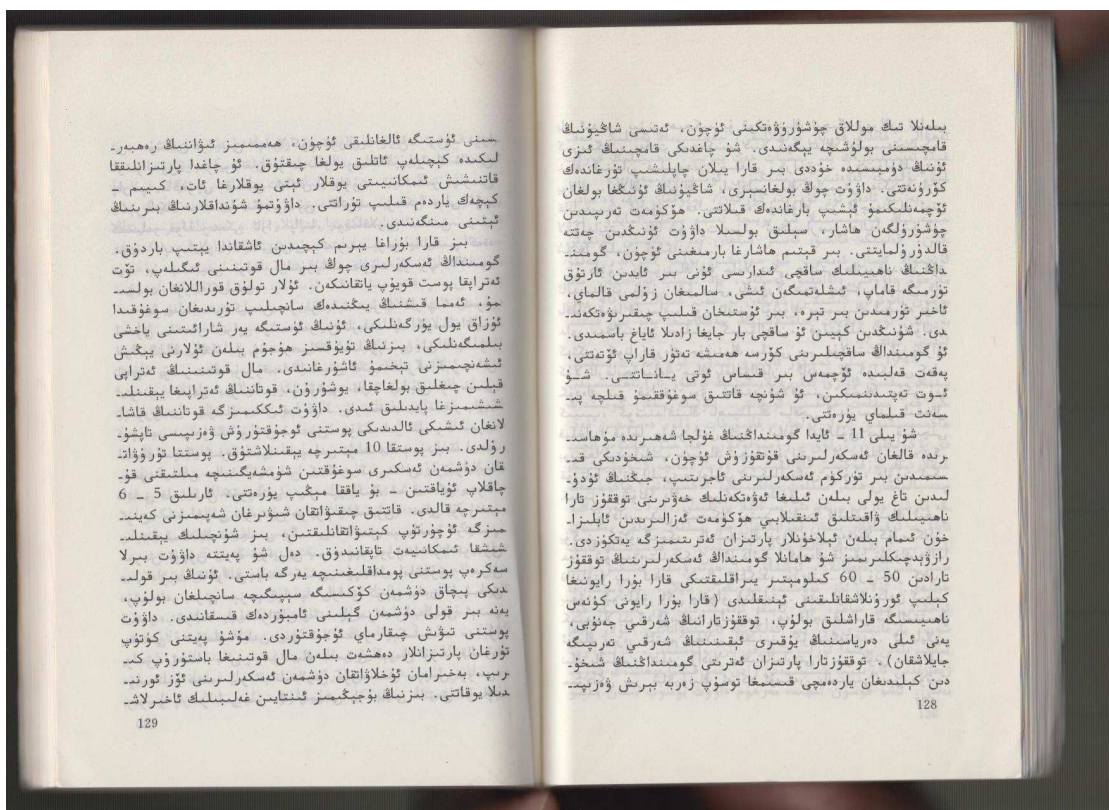 بىلەنلا تىك موللاق چۈشۈرۈۋەتكىنى ئۈچۈن، ئەتىسى شاڭيۇنىڭ
قامچىسىنى بولۇشىچە يېگەنىدى. شۇ چاغدىكى قامچىنىڭ ئىزى
ئۇنىڭ دۈمبىسىدە خۇددى بىر قارا يىلان چاپلىشىپ تۇرغاندەك
كۆرۈنەتتى. داۋۇت چوڭ بولغانسېرى، شاڭيۇنىڭ ئۇنىڭغا بولغان
ئۆچمەنلىكىمۇ ئېشىپ بارغاندەك قىلاتتى. ھۆكۈمەت تەرىپىدىن
چۈشۈرۈلگەن ھاشار، سېلىق بولسىلا داۋۇت ئۇنىڭدىن چەتتە
قالدۇرۇلمايتتى. بىر قېتىم ھاشارغا بارمىغىنى ئۈچۈن، گومىنـ
داڭنىڭ ناھىيىلىك ساقچى ئىدارىسى ئۇنى بىر ئايدىن ئارتۇق
تۈرمىگە قاماپ، ئىشلەتمىگەن ئىشى، سالمىغان زۇلمى قالماي،
ئاخىر تۈرمىدىن بىر تېرە، بىر ئۇستىخان قىلىپ چىقىرىۋەتكەنـ
دى. شۇنىڭدىن كېيىن ئۇ ساقچى بار جايغا زادىلا ئاياغ باسمىدى.
ئۇ گومىنداڭ ساقچىلىرىنى كۆرسە ھەمىشە تەتۈر قاراپ ئۆتەتتى،
پەقەت قەلبىدە ئۆچمەس بىر قىساس ئوتى يـانـاتتـى. شـۇ
ئـوت تەپتىدىنمىكىن، ئۇ شۇنچە قاتتىق سوغۇققىمۇ قىلچە پىـ
سەنت قىلماي يۈرەتتى.
شۇ يىلى 11 ـ ئايدا گومىنداڭنىڭ غۇلجا شەھىرىدە مۇھاسىـ
رىدە قالغان ئەسكەرلىرىنى قۇتقۇزۇش ئۈچۈن، شىخودىكى قىـ
سىمىدىن بىر تۈركۈم ئەسكەرلىرىنى ئاجرىتىپ، جىڭنىڭ ئۇدۇـ
لىدىن تاغ يولى بىلەن ئىلىغا ئەۋەتكەنلىك خەۋىرىنى توققۇز تارا
ناھىيىلىك ۋاقىتلىق ئىنقىلابىي ھۆكۈمەت ئەزالىرىدىن ئابلىزاـ
خۇن ئىمام بىلەن ئېلاخۇنلار پارتىزان ئەترىتىمىزگە يەتكۈزدى.
رازۋېدچىكلىرىمىز شۇ ھامانلا گومىنداڭ ئەسكەرلىرىنىڭ توققۇز
تارادىن 50 ـ 60 كىلومېتىر يىراقلىقتىكى قارا بۇرا رايونىغا
كېلىپ ئورۇنلاشقانلىقىنى ئېنىقلىدى (قارا بۇرا رايونى كۈنەس
ناھىيىسىگە قاراشلىق بولۇپ، توققۇزتارانىڭ شەرقىي جەنۇبى،
يەنى ئىلى دەرياسىنىڭ يۇقىرى ئېقىنىنىڭ شەرقىي تەرىپىگە
جايلاشقان). توققۇزتارا پارتىزان ئەترىتى گومىنداڭنىڭ شىخوـ
دىن كېلىدىغان ياردەمچى قىسىمغا توسۇپ زەربە بېرىش ۋەزىپىـ
128
سىنى ئۈستىگە ئالغانلىقى ئۈچۈن، ھەممىمىز ئىۋاننىڭ رەھبەرـ
لىكىدە كېچىلەپ ئاتلىق يولغا چىقتۇق. ئۇ چاغدا پارتىزانلىققا
قاتنىشىش ئىمكانىيىتى يوقلار ئېتى يوقلارغا ئات، كىيىم ـ
كېچەك ياردەم قىلىپ تۇراتتى. داۋۇتمۇ شۇنداقلارنىڭ بىرىنىڭ
ئېتىنى مىنگەنىدى.
بىز قارا بۇراغا يېرىم كېچىدىن ئاشقاندا يېتىپ باردۇق.
گومىنداڭ ئەسكەرلىرى چوڭ بىر مال قوتىنىنى ئىگىلەپ، تۆت
ئەتراپقا پوست قويۇپ ياتقانىكەن. ئۇلار تولۇق قوراللانغان بولسىـ
مۇ، ئەمما قىشنىڭ يىڭنىدەك سانچىلىپ تۇرىدىغان سوغۇقىدا
ئۇزاق يول يۈرگەنلىكى، ئۇنىڭ ئۈستىگە يەر شارائىتىنى ياخشى
بىلمىگەنلىكى، بىزنىڭ تۇيۇقسىز ھۇجۇم بىلەن ئۇلارنى يېڭىش
ئىشەنچىمىزنى تېخىمۇ ئاشۇرغانىدى. مال قوتىنىنىڭ ئەتراپى
قېلىن چىغلىق بولغاچقا، يوشۇرۇن، قوتاننىڭ ئەتراپىغا يېقىنلىـ
شىشىمىزغا پايدىلىق ئىدى. داۋۇت ئىككىمىزگە قوتاننىڭ قاشاـ
لانغان ئىشىكى ئالدىدىكى پوستنى ئوجۇقتۇرۇش ۋەزىپىسى تاپشۇـ
رۇلدى. بىز پوستقا 10 مېتىرچە يېقىنلاشتۇق. پوستتا تۇرۇۋاتـ
قان دۈشمەن ئەسكىرى سوغۇقتىن شۈمشەيگىنىچە مىلتىقنى قۇـ
چاقلاپ ئۇياقتىن ـ بۇ ياققا مېڭىپ يۈرەتتى. ئارىلىق 5 ـ 6
مېتىرچە قالدى. قاتتىق چىقىۋاتقان شىۋىرغان شەپىمىزنى كەينىـ
مىزگە ئۇچۇرتۇپ كېتىۋاتقانلىقتىن، بىز شۇنچىلىك يېقىنلىـ
شىشقا ئىمكانىيەت تاپقانىدۇق. دەل شۇ پەيتتە داۋۇت بىرلا
سەكرەپ پوستنى پومداقلىغىنىچە يەرگە باستى. ئۇنىڭ بىر قولىـ
دىكى پىچاق دۈشمەن كۆكسىگە سېپىگىچە سانچىلغان بولۇپ،
يەنە بىر قولى دۈشمەن گېلىنى ئامبۇردەك قىسقانىدى. داۋۇت
پوستنى تىۋىش چىقارماي ئوجۇقتۇردى. مۇشۇ پەيتنى كۈتۈپ
تۇرغان پارتىزانلار دەھشەت بىلەن مال قوتىنىغا باستۇرۇپ كىـ
رىپ، بەخىرامان ئۇخلاۋاتقان دۈشمەن ئەسكەرلىرىنى ئۆز ئورنىـ
دىلا يوقاتتى. بىزنىڭ بۇجېڭىمىز ئىنتايىن غەلىبىلىك ئاخىرلاشـ
129